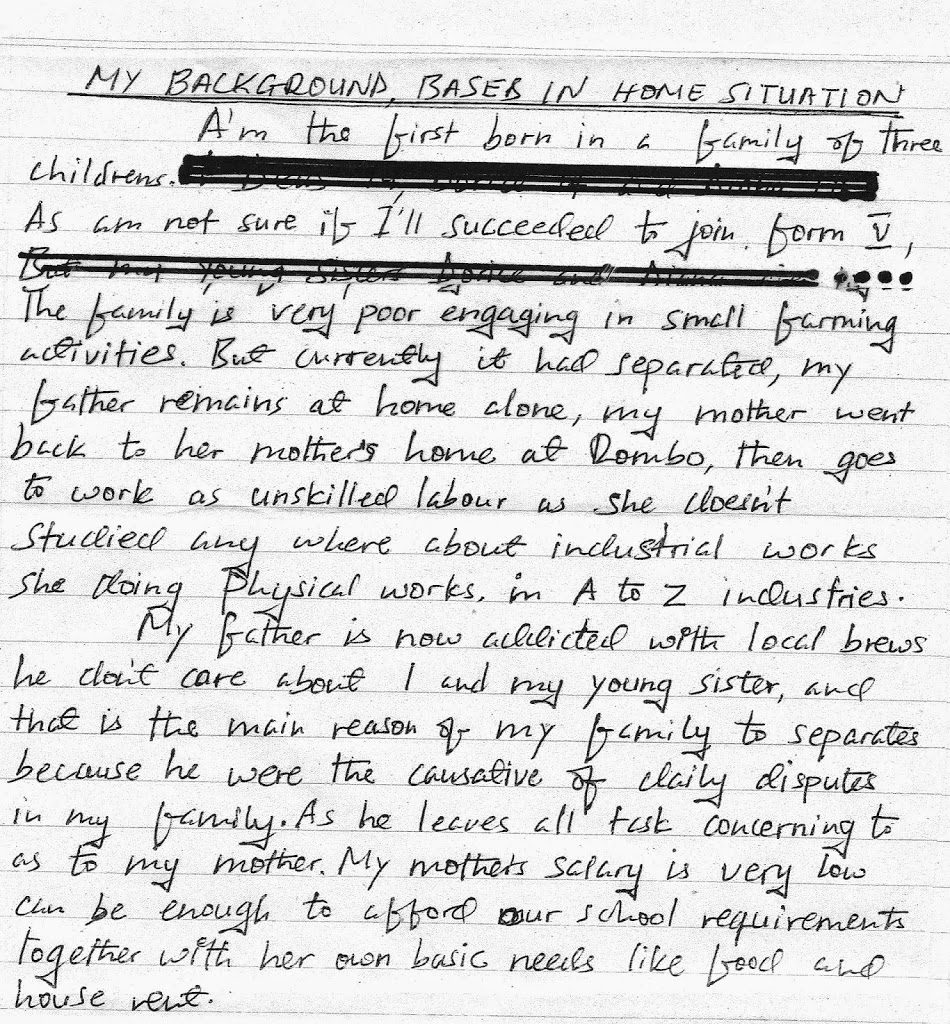 MY BACKGROUND, BASEB IN HOME SITUATION
A'm the first born in a family of three
childrens.
As am not sure if I'll succeeded to join form V,
But my young sisters
The family is very poor engaging in small farming
activities. But currently it had separated, my
father remains at home alone, my mother went
back to her mother's home at Rombo, then goes
to work as unskilled labour as she doesn't
studied any where about industrial works
she doing Physical works. in A to Z industries.
My father is now addicted with local brews
he don't care about I and my young sister, and
that is the main reason of my family to separates
because he were the causative of daily disputes
in my family. As he leaves all task concerning to
as to my mother. My mother's salary is very low
can be enough to afford our school requirements
together with her own basic needs like food and
house rent.